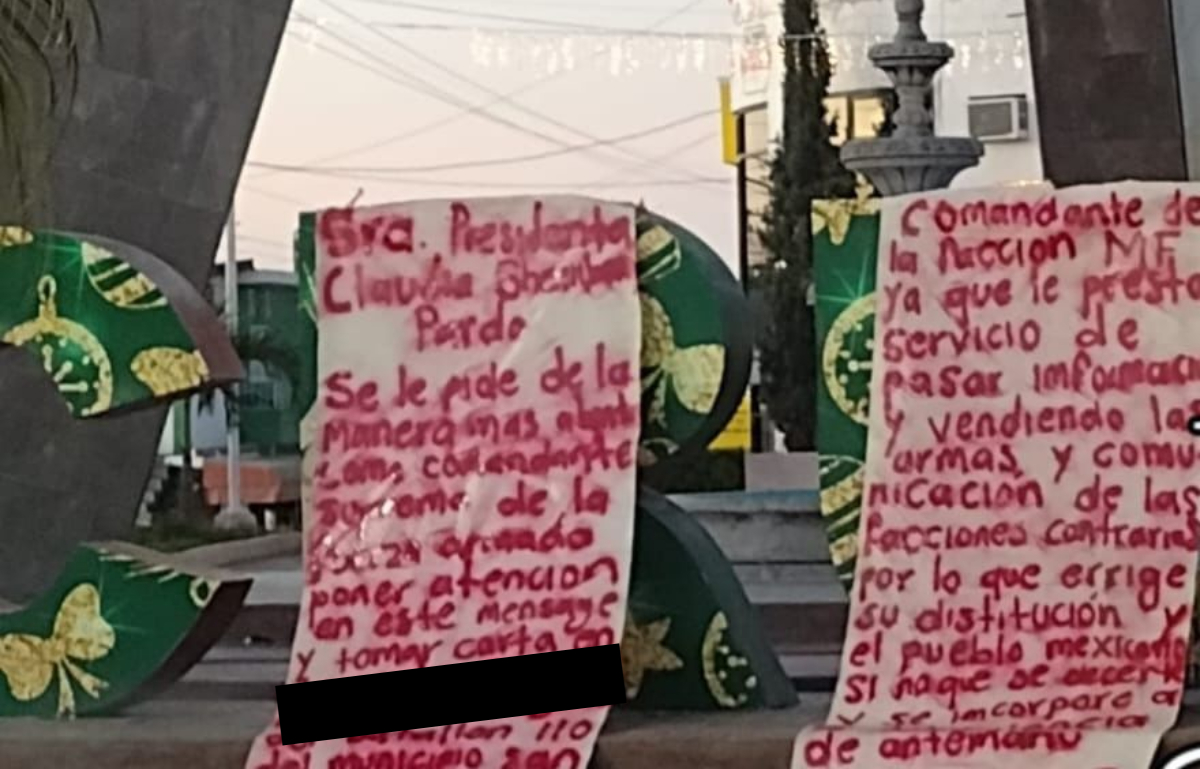 Sra. Presidenta
Claudia Sheinbaum
Pardo
Se le pide de la
manera mas atenta
como comandante
suprema de la
fuerza armada
poner atencion
en este mensage
y tomar carta en
del batallon 110
del municipio san
Comandante de
la faccion MF
ya que le presta
servicio de
pasar informaci
y vendiendo las
armas y comu-
nicación de las
facciones contrarias
por lo que errige
su distitución y
el pueblo mexicano
si no que se
y se incorpara a
de antemano